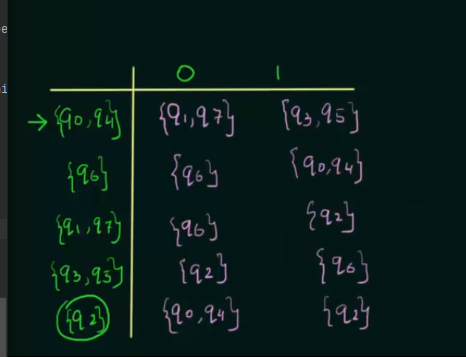 0 1
→ {q0, q4} {q1, q7} {q3, q5}
{q6} {q6} {q0, q4}
{q1, q7} {q6} {q2}
{q3, q5} {q2} {q6}
{q2} {q0, q4} {q2}